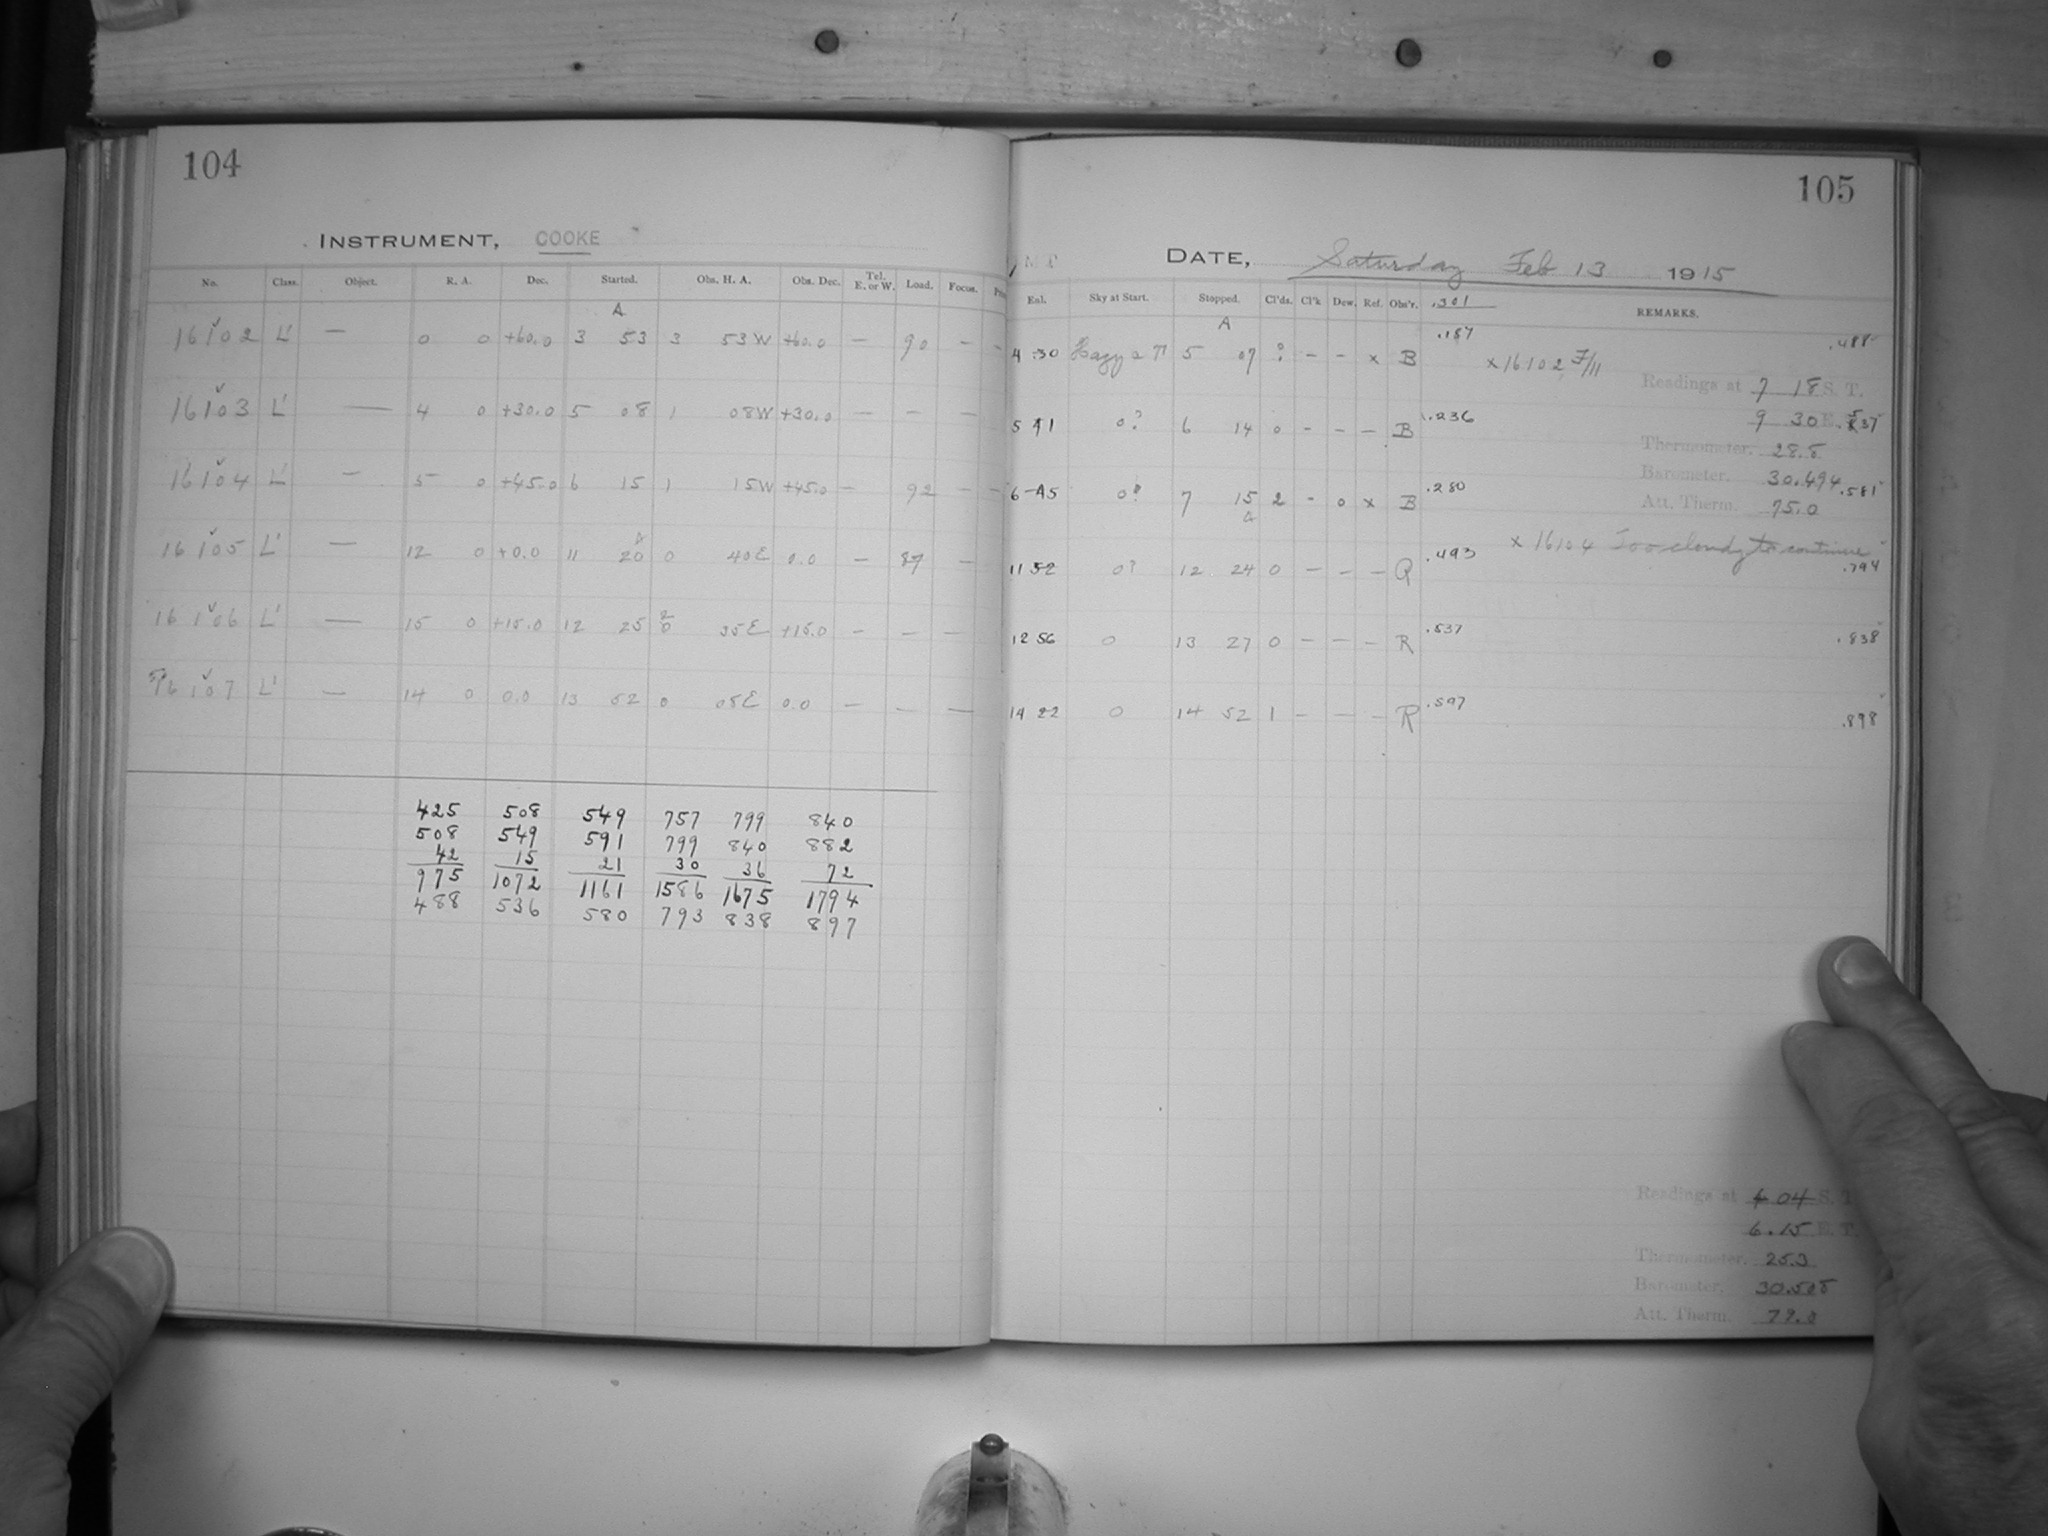 104
INSTRUMENT, COOKE
No. Class. Object. R. A. Dec. Started. Obs. H. A. Obs. Dec. Tel. E. or W. Load. Focus.
A
16102 L' — 0 0 +60.0 3 53 3 53W +60.0 — 90 — —
16103 L' — 4 0 +30.0 5 08 1 08W +30.0 — — —
16104 L' — 5 0 +45.0 6 15 1 15W +45.0 — 92 — —
A
16105 L' — 12 0 +0.0 11 20 0 40E 0.0 — 87 —
16106 L' — 15 0 +15.0 12 25 2 35E +15.0 — — —
16107 L' — 14 0 0.0 13 52 0 05E 0.0 — — —
425 508 549 757 799 840
508 549 591 799 840 882
42 15 21 30 36 72
975 1072 1161 1586 1675 1794
488 536 580 793 838 897
105
DATE, Saturday Feb 13 1915
Ext. Sky at Start. Stopped. Cl'ds. Cl'k Dew. Ref. Obs'r. .301 REMARKS.
A
4 30 Hazy 5 07 ? — — x B .187 x 16102 F/11 .488
Readings at 7 18 S. T.
9 30 E.
5 41 0? 6 14 0 — — — B .236 .537
Thermometer. 28.8
Barometer. 30.494
6 45 0? 7 15 2 - 0 x B .280 .581
A
Att. Therm. 75.0
x 16104 Too cloudy to continue
11 52 0? 12 24 0 — — — .493 .794
12 56 0 13 27 0 — — — R .537 .838
14 22 0 14 52 1 — — — R .597 .898
Readings at 4 04 S. T.
6.15 E. T.
Thermometer. 25.3
Barometer. 30.505
Att. Therm. 77.0